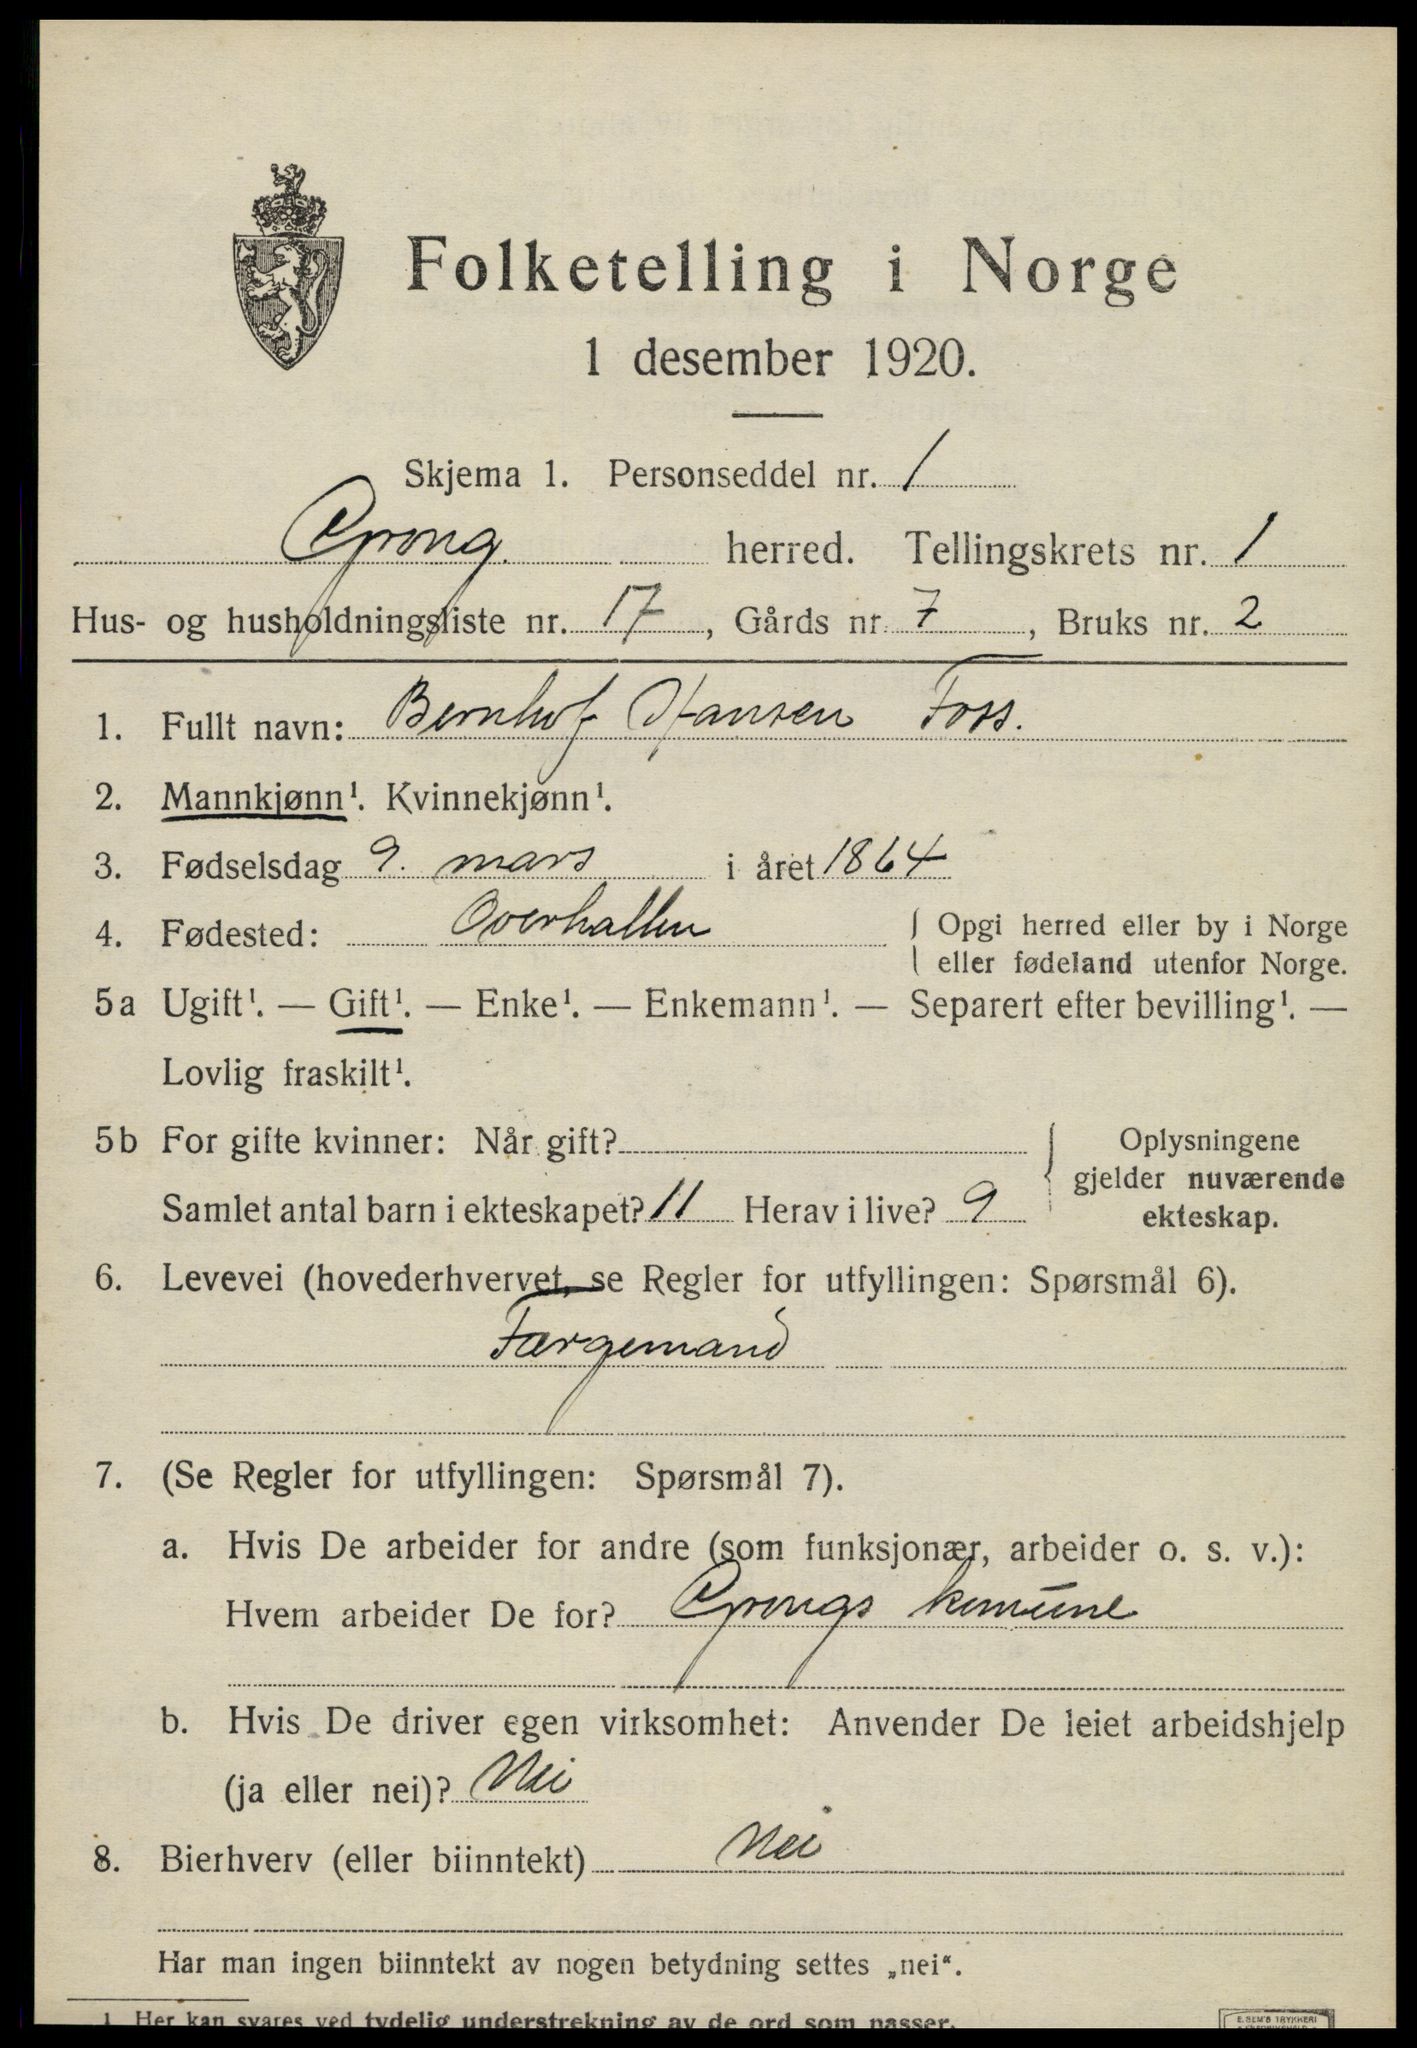 Folketelling i Norge
1 desember 1920.
Skjema 1. Personseddel nr. 1
Grong herred. Tellingskrets nr. 1
Hus- og husholdningsliste nr. 17, Gårds nr 7, Bruks nr. 2
1. Fullt navn: Bernhof Hansen Foss.
2. Mannkjønn¹. Kvinnekjønn¹.
3. Fødselsdag 9. mars i året 1864
4. Fødested: Overhallen { Opgi herred eller by i Norge
eller fødeland utenfor Norge.
5a Ugift¹. — Gift¹. — Enke¹. — Enkemann¹. — Separert efter bevilling¹. —
Lovlig fraskilt¹.
5b For gifte kvinner: Når gift?
Samlet antal barn i ekteskapet? 11 Herav i live? 9
{ Oplysningene
gjelder nuværende
ekteskap.
6. Levevei (hovederhvervet, se Regler for utfyllingen: Spørsmål 6).
Færgemand
7. (Se Regler for utfyllingen: Spørsmål 7).
a. Hvis De arbeider for andre (som funksjonær, arbeider o. s. v.):
Hvem arbeider De for? Grongs komune
b. Hvis De driver egen virksomhet: Anvender De leiet arbeidshjelp
(ja eller nei)? Nei
8. Bierhverv (eller biinntekt) Nei
Har man ingen biinntekt av nogen betydning settes „nei“.
1 Her kan svares ved tydelig understrekning av de ord som passer.
E. SEM'S TRYKKERI